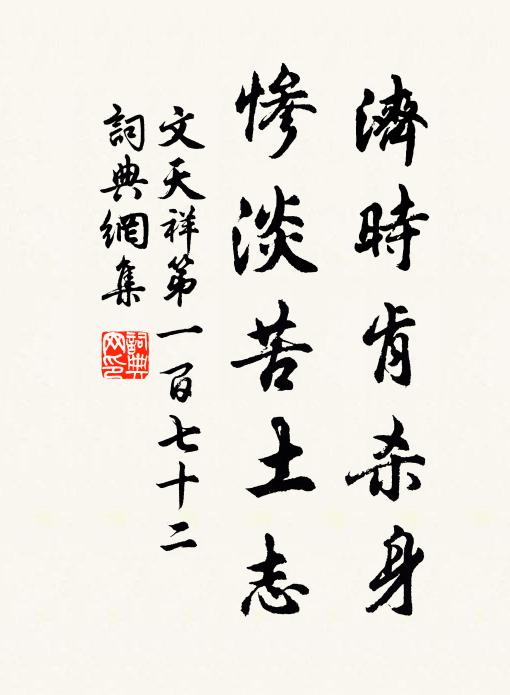 濟時肯杀身
惨淡苦土志
文天祥第一百七十二
詞典網集
詞典網印